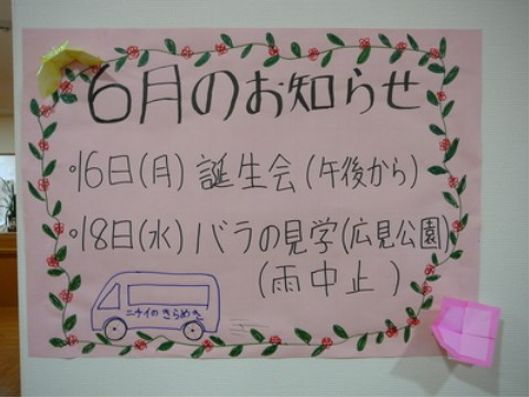 6月のお知らせ
・16日(月) 誕生会(午後から)
・18日(水) バラの見学(広見公園)
(雨中止)
ニチイのきらめき